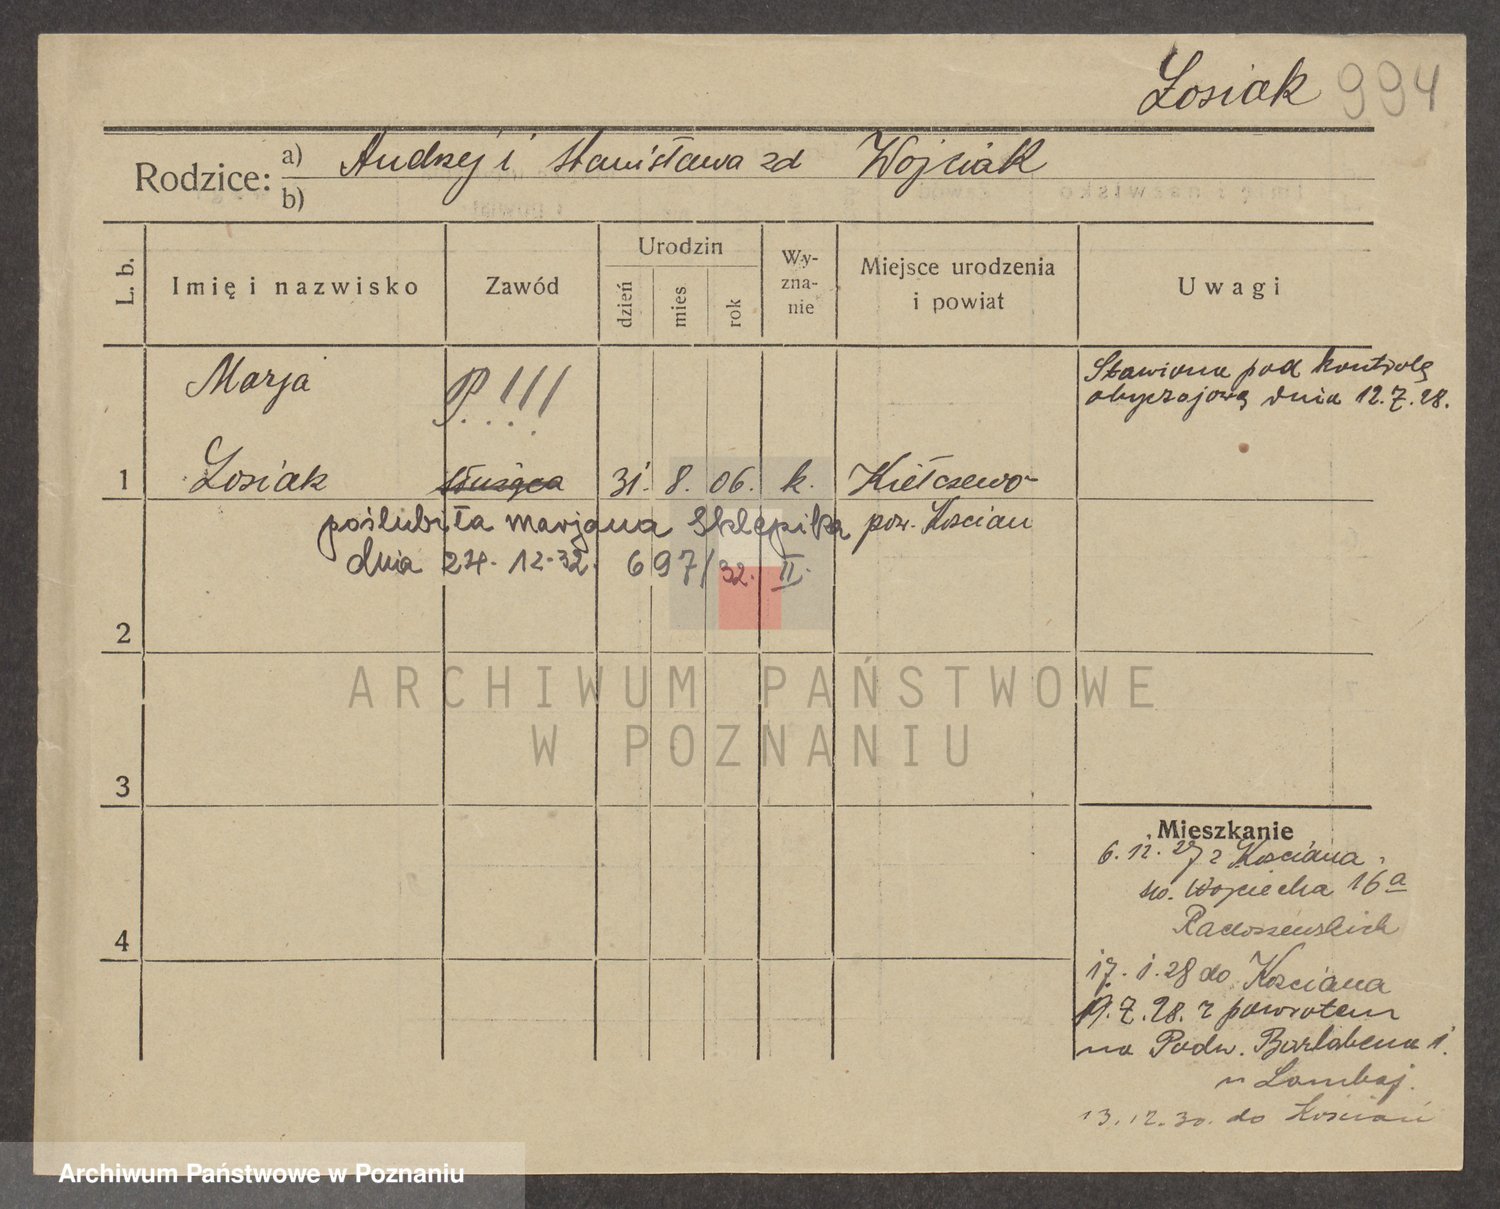 Łosiak 994
Rodzice: a) Andrzej i Stanisława zd Wojciak
b)
L. b.
Imię i nazwisko
Zawód
Urodzin
dzień
mies
rok
Wy-
zna-
nie
Miejsce urodzenia
i powiat
Uwagi
Marja
P!!!
Stawiona pod kontrolę
obyczajową dnia 12.7.28.
1 Łosiak służąca 31. 8. 06. k. Kiełczewo
poślubiła Marjana Sklepika pow. Kościan
dnia 24. 12. 32. 697/32. II.
2
ARCHIWUM PAŃSTWOWE
W POZNANIU
3
Mieszkanie
6. 12. 27 z Kościana
św. Wojciecha 16a
Radoszewskich
4
17. 1. 28 do Kościana
19. 7. 28. z powrotem
na Podw. Barlabena 1.
13. 12. 30. do Kościan
Archiwum Państwowe w Poznaniu